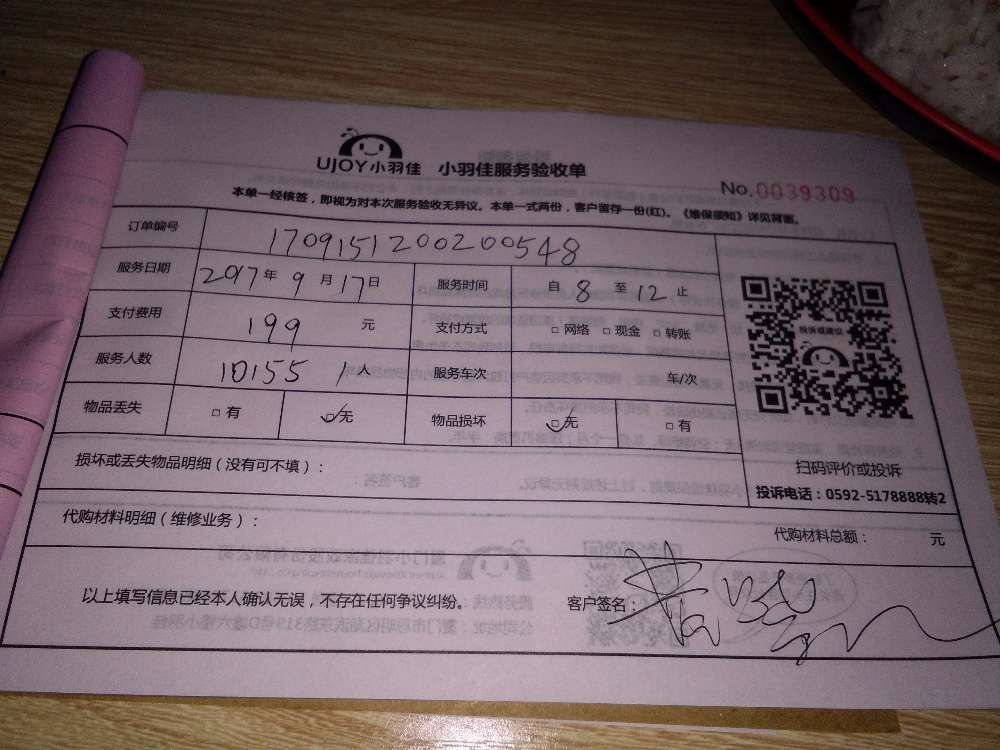 UJOY小羽佳 小羽佳服务验收单
No.0039309
本单一经核签，即视为对本次服务验收无异议。本单一式两份，客户留存一份(红)。《维保须知》详见背面。
订单编号 170915120020​0548
服务日期 2017年9月17日 服务时间 自8至12止
支付费用 199 元 支付方式 □网络 □现金 □转账
投诉或建议
服务人数 10155 1人 服务车次 车/次
物品丢失 □有 □无 物品损坏 □无 □有
扫码评价或投诉
损坏或丢失物品明细（没有可不填）：
投诉电话：0592-5178888转2
代购材料明细（维修业务）： 代购材料总额： 元
以上填写信息已经本人确认无误，不存在任何争议纠纷。 客户签名：